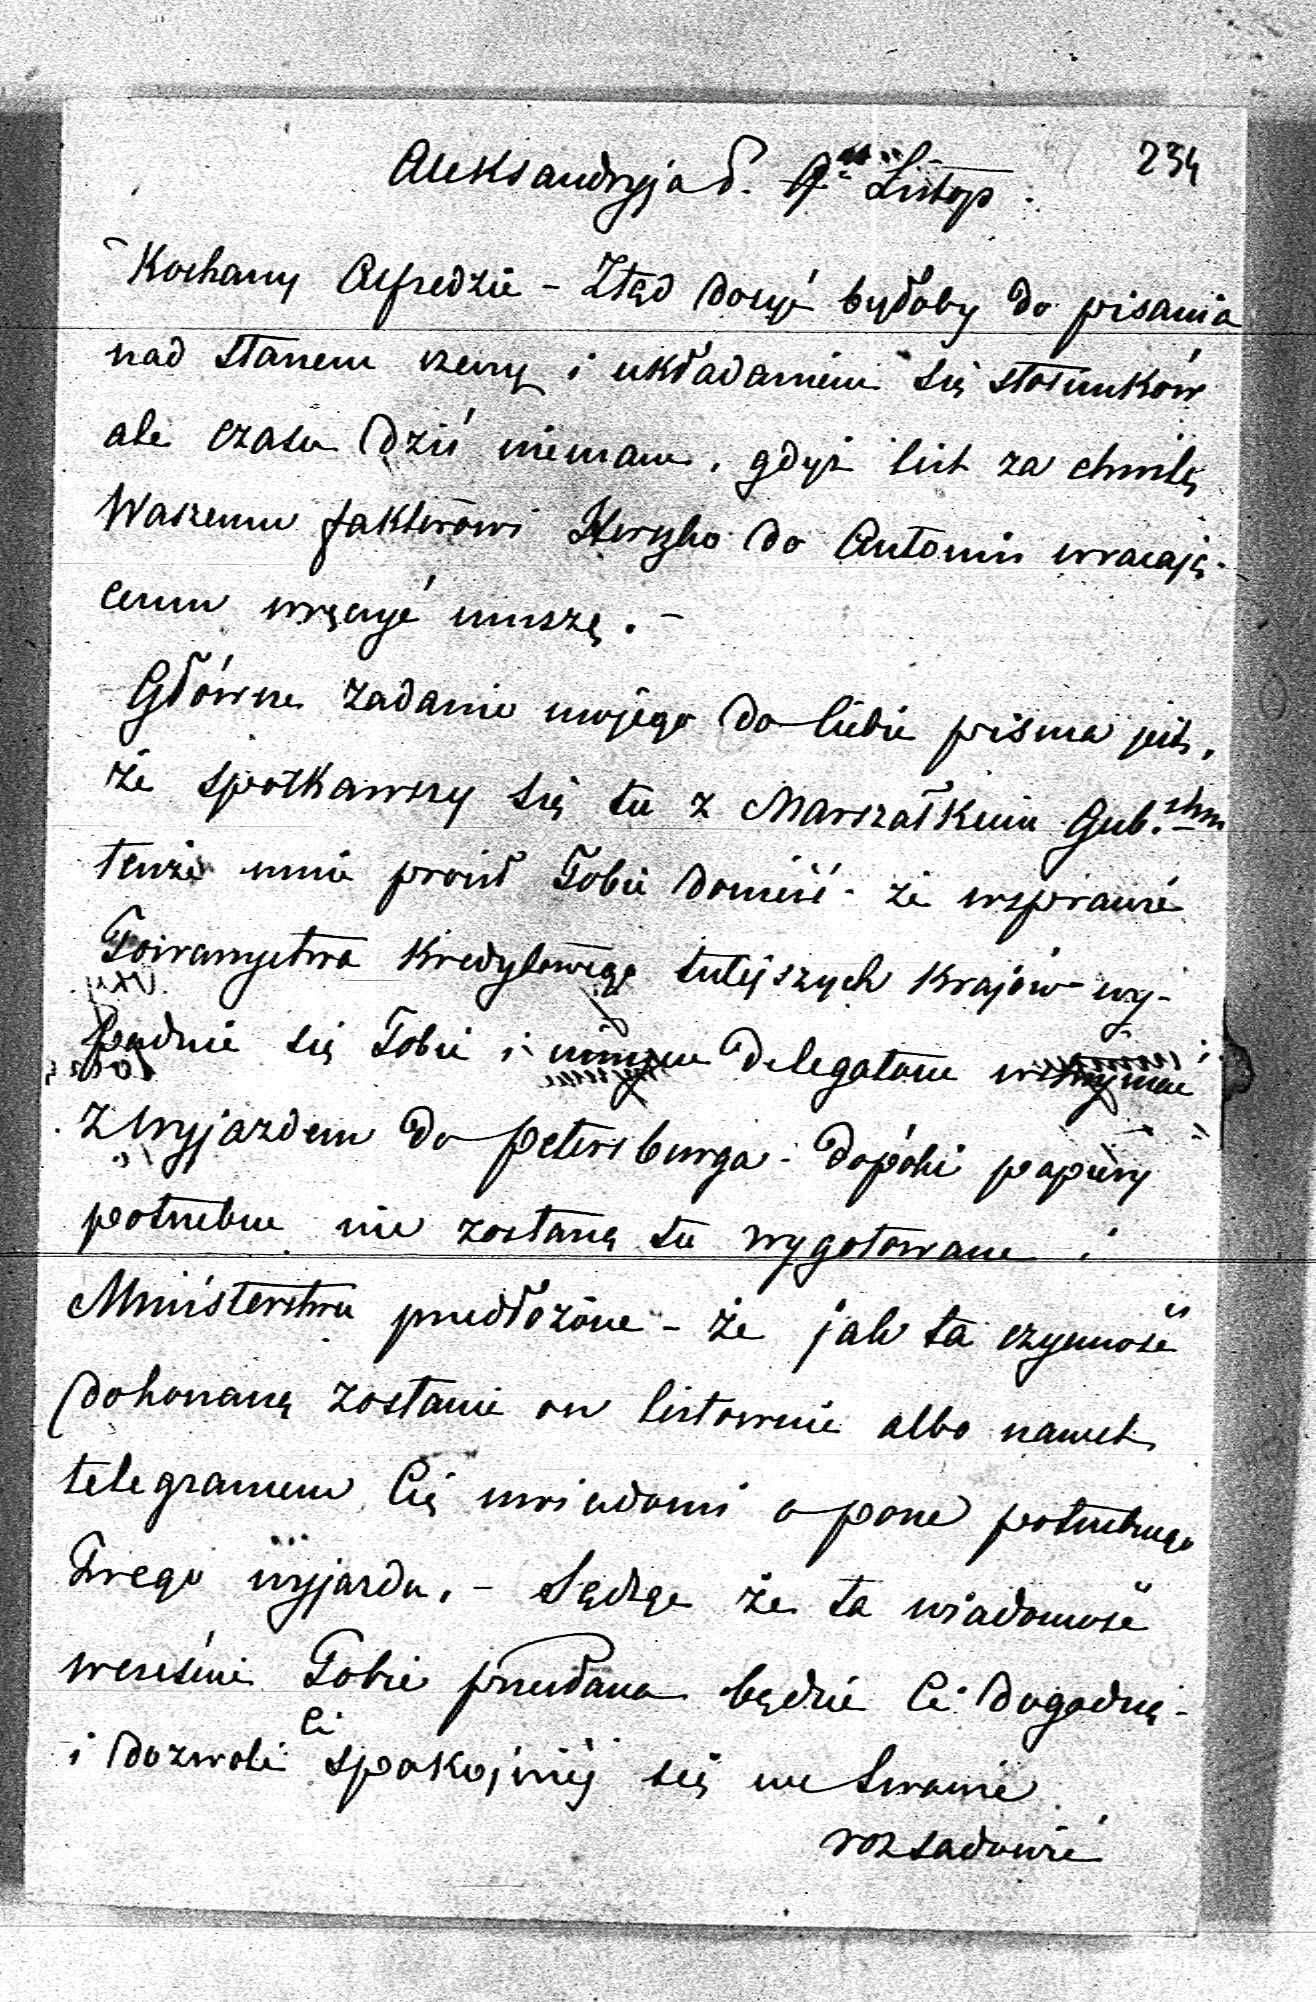 234
Aleksandryja d. 9. Listop.
Kochany Alfredzie - Ztąd dosyć byłoby do pisania
nad stanem rzeczy i układaniem się stosunków
ale czasu dziś niemam, gdyż list za chwilę
Waszemu faktorowi Herszko do Antonin wracają-
cemu wręczyć muszę. -
Główne zadanie mojego do Ciebie pisma jest,
że spotkawszy się tu z Marszałkiem Gub.skim
tenże mnie prosił Tobie donieść - że wsprawie
Towarzystwa Kredytowego tutejszych krajów wy-
padnie się Tobie i innym Delegatom wstrzymać
z wyjazdem do Petersburga - dopóki papiery
potrzebne nie zostaną tu wygotowane i
Ministerstwu przedłożone - że jak ta czynność
dokonaną zostanie on listownie albo nawet
telegramem Cię uwiadomi o porze potrzebnego
Twego wyjazdu. - Sądzę że ta wiadomość
wcześnie Tobie przesłana będzie Ci dogodną -
i dozwoli Ci spokojniej się we Lwowie
rozsadowić